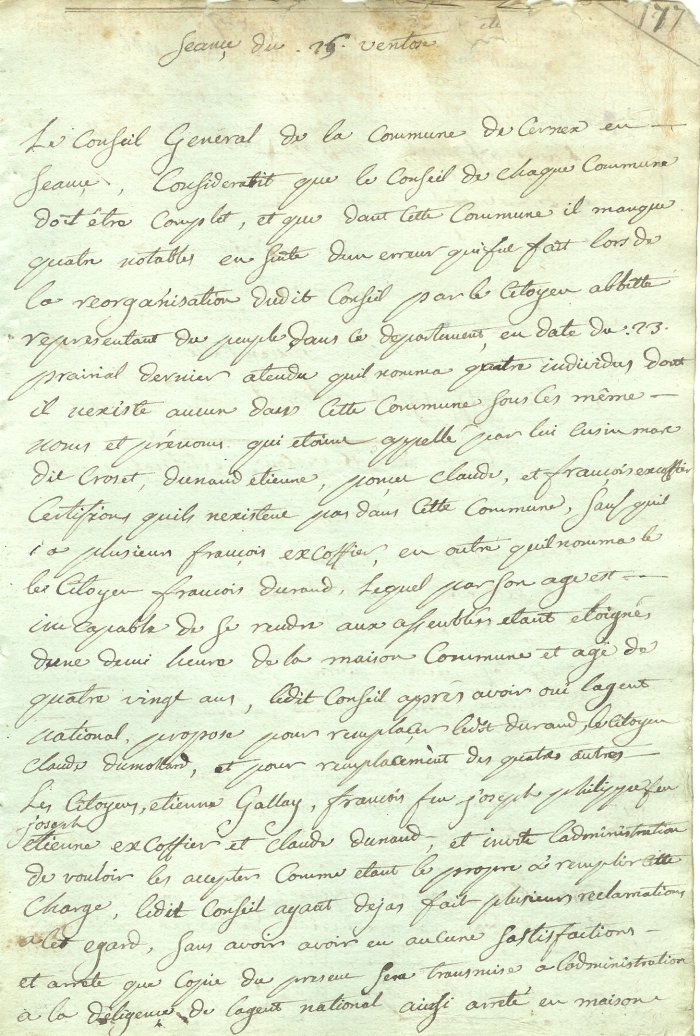 177
Seançe du 25. ventose
Le Conseil General de la Commune de Cernex en
Seançe, Considerant que le Conseil de chaque Commune
doit être Complet, et que dant Cette Commune il manque
quatre notables en suite dun erreur qui fut fait lors de
la reorganisation dudit Conseil par le Citoyen abbitte
representant du peuple, dans ce departement, en date du .23.
prairial dernier atendu quil nomma quatre individus dont
il nexiste aucun dans Cette Commune sous les même
noms et prénoms qui etoient appellé par lui
dit Croset, dunand etienne, ponçet Claude, et françois excoffier
Certifions quils nexistent pas dans Cette Commune, sauf quil
i a plusieurs françois excoffier, en outre quil nomma le
le Citoyen francois durand, lequel par son age est
incapable de se rendre aux assemblés etant eloignés
dune demi heure de la maison Commune et agé de
quatre vingt ans, ledit Conseil après avoir oui lagent
national, propose pour remplaçer ledit durand, le Citoyen
Claude dumollard, et pour remplacement des quatres autres
Les Citoyens, etienne Gallay, francois feu joseph philippe feu
joseph
etienne excoffier et Claude dunand, et invite ladministration
de vouloir les accepter Comme etant le propre a remplir Cette
Charge, ledit Conseil ayant dejas fait plusieurs reclamations
a Cet egard, sans avoir avoir eu aucune sastisfactions
et arrete que Copie du present sera transmise a ladministration
a la deligençe de lagent national aussi arreté en maison